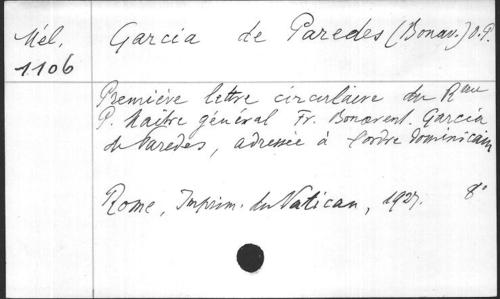 Mél.
1106
Garcia de Paredes (Bonav.) O.P.
Première lettre circulaire du Rme
P. Maitre général Fr. Bonavent. Garcia
de Paredes, adressée à l'ordre Dominicain
Rome, Imprim. du Vatican, 1927. 8°